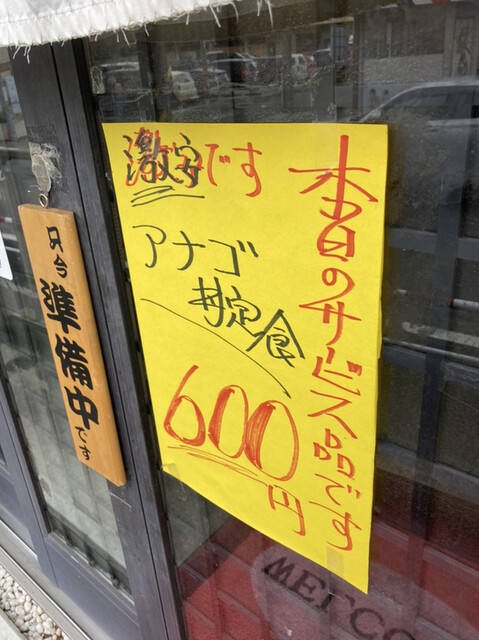 本日のサービス品です
激安です
アナゴ
丼定食
600円
只今準備中です
WELCO